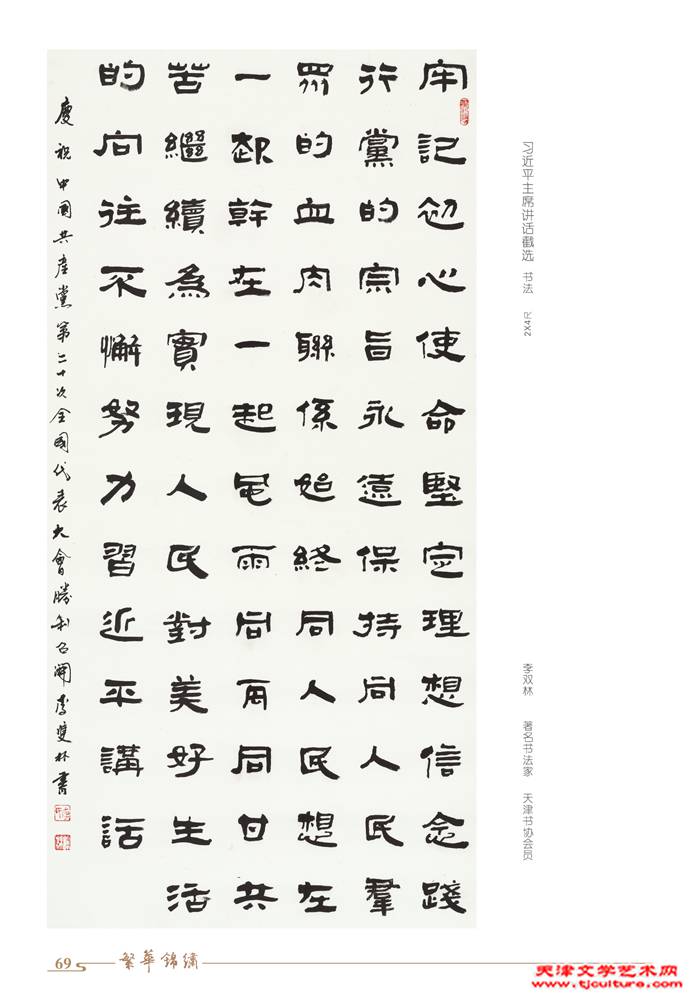 牢記初心使命堅定理想信念踐
行黨的宗旨永遠保持同人民羣
眾的血肉聯係始終同人民想在
一起幹在一起風雨同舟同甘共
苦繼續為實現人民對美好生活
的向往不懈努力習近平講話
慶祝中國共產黨第二十次全國代表大會勝利召開李雙林書
习近平主席讲话截选 书法 2X4尺
李双林 著名书法家 天津书协会员
69 繁華錦繡
天津文学艺术网
www.tjculture.com